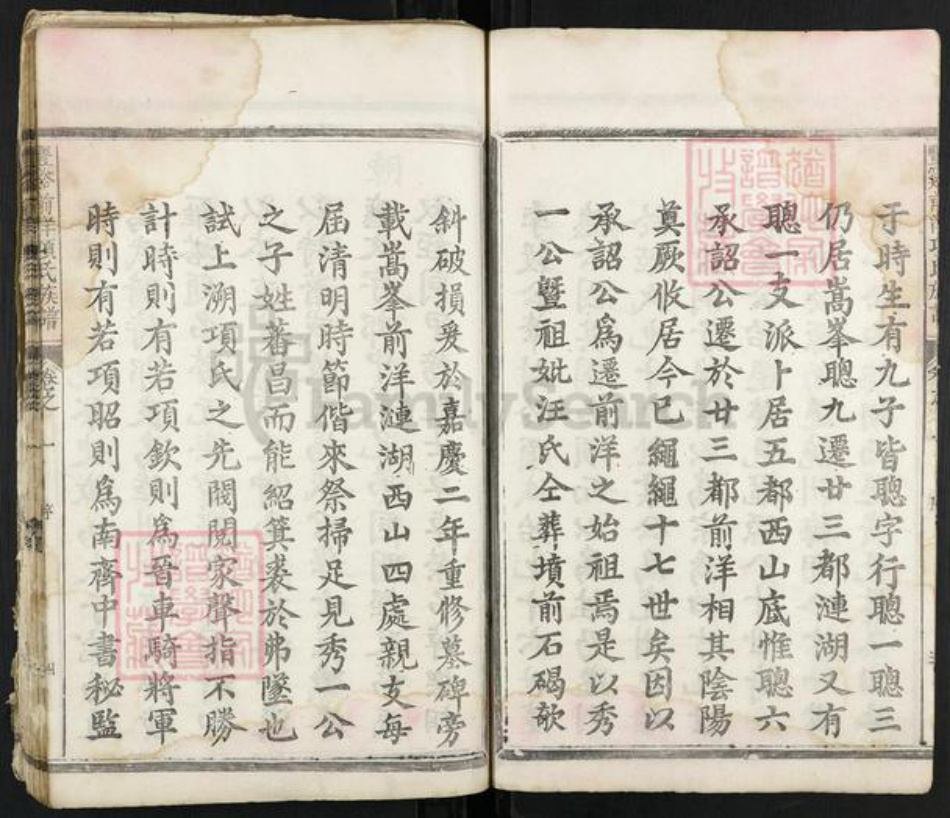 于時生有九子皆聰字行聰一聰三
仍居嵩峯聰九遷廿三都漣湖又有
聰一支派卜居五都西山底惟聰六
承詔公遷於廿三都前洋相其陰陽
奠厥攸居今已繩繩十七世矣因以
承詔公爲遷前洋之始祖焉是以秀
一公暨祖妣汪氏仝葬墳前石碣欹
斜破損爰於嘉慶二年重修墓碑旁
載嵩峯前洋漣湖西山四處親支每
屆清明時節偕來祭掃足見秀一公
之子姓蕃昌而能紹箕裘於弗墜也
試上溯項氏之先閥閱家聲指不勝
計時則有若項欽則爲晉車騎將軍
時則有若項昭則爲南齊中書秘監
前洋項氏族譜
卷之
一
序
FamilySearch